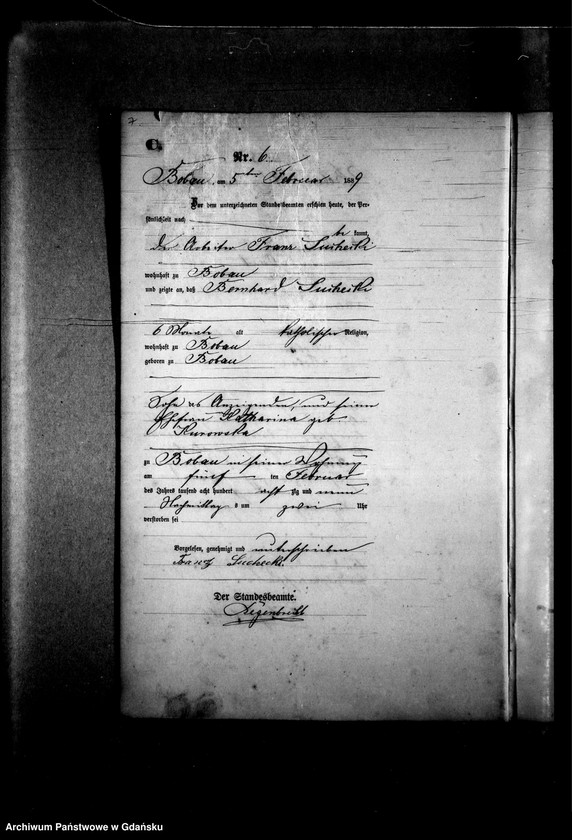 7
C.
Nr. 6
Bobau am 5ten Februar 1889
Vor dem unterzeichneten Standesbeamten erschien heute, der Per-
sönlichkeit nach
be kannt,
der Arbeiter Franz Suchecki
wohnhaft zu Bobau
und zeigte an, daß Bernhard Suchecki
6 Monate alt katholischer Religion,
wohnhaft zu Bobau
geboren zu Bobau
Sohn des Anzeigenden, und seiner
Ehefrau Katharina geb.
Kurowska
zu Bobau in seiner Wohnung
am fünf ten Februar
des Jahres tausend acht hundert acht zig und neun
Nachmittag s um zwei Uhr
verstorben sei
Vorgelesen, genehmigt und unterschrieben
Franz Suchecki
Der Standesbeamte.
Archiwum Państwowe w Gdańsku